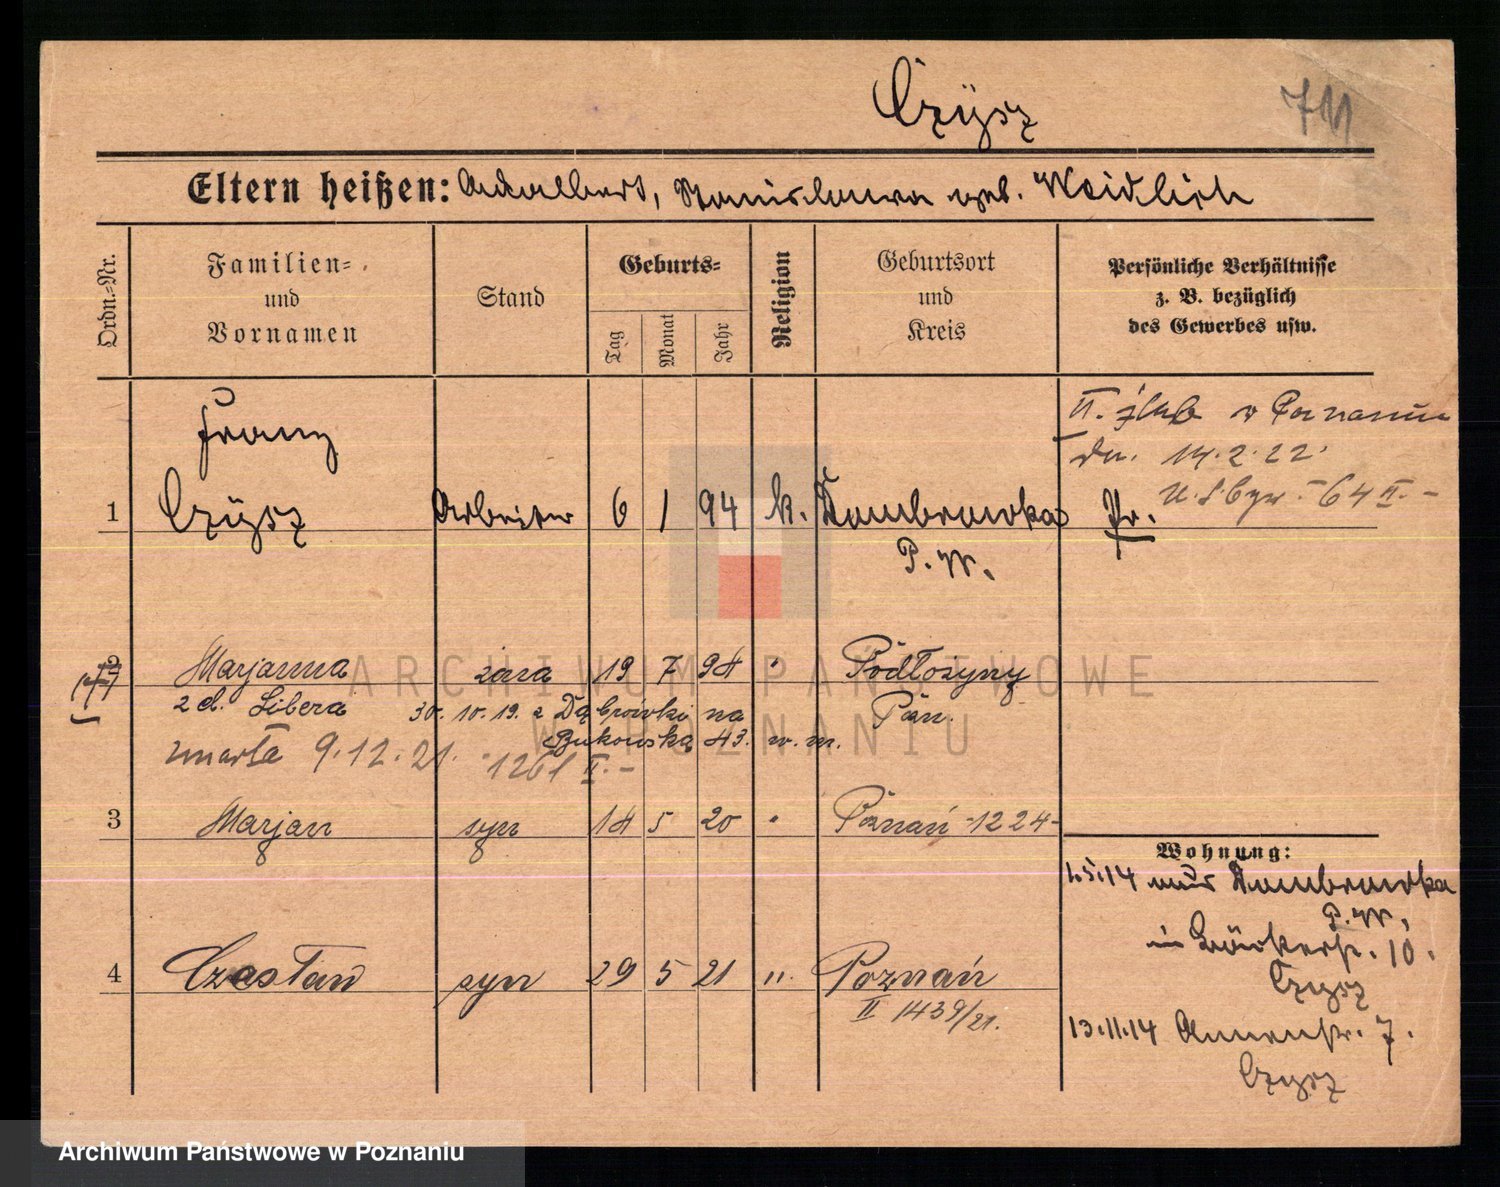 Czÿsz
711
Eltern heißen: Adalbert, Stanislawa geb. Weidlich
Ordn.-Nr.
Familien-
und
Vornamen
Stand
Geburts-
Tag
Monat
Jahr
Religion
Geburtsort
und
Kreis
Persönliche Verhältnisse
z. B. bezüglich
des Gewerbes usw.
II. ślub w Poznaniu
dn. 14.2.22.
64 II. -
Franz
1 Czÿsz Arbeiter 6 1 94 k. Dombrowka Pr.
P. W.
2 Marjanna żona 19 7 94 " Podłoziny
z d. Libera 30. 10. 19. z Dąbrówki na Pozn.
Bukowska 43. w. m.
zmarła 9.12.21. 1261 II. -
3 Marjan syn 14 5 20 " Poznań -1224-
Wohnung:
1.5.14 aus Dombrowka
P. W.
in Bäckerstr. 10.
Czysz
4 Czesław syn 29 5 21 " Poznań
II 1439/21.
13.11.14 Annenstr. 7.
Czysz
ARCHIWUM PAŃSTWOWE
W POZNANIU
Archiwum Państwowe w Poznaniu